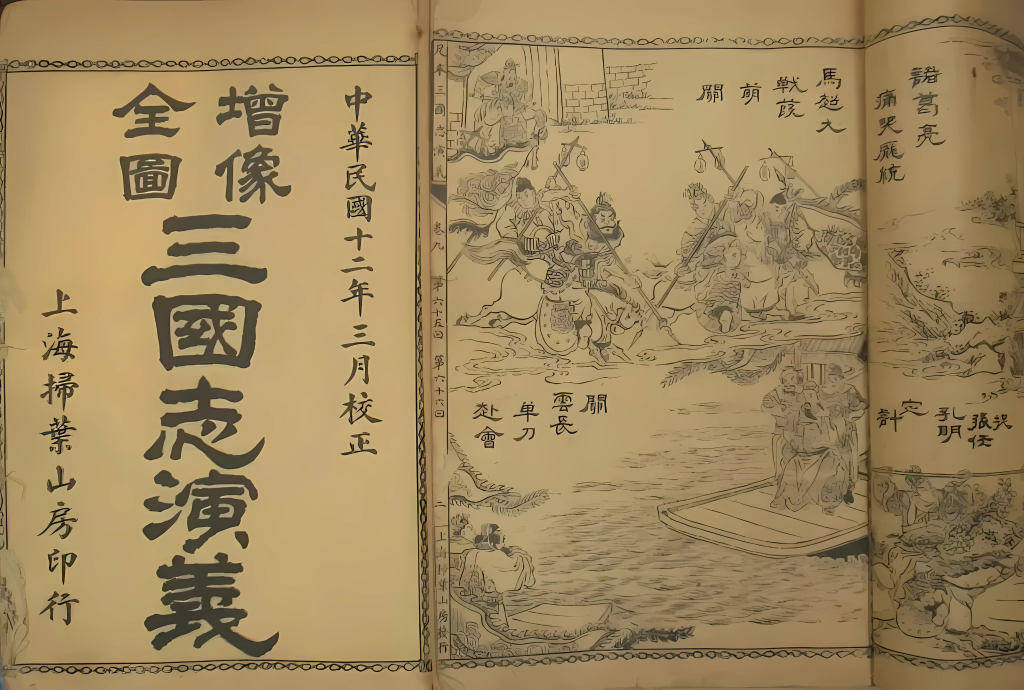 中華民國十二年三月校正
增像
全圖
三國志演義
上海掃葉山房印行
馬超大
戰葭
萌
關
關
雲長
单刀
赴會
三國志演義
卷九
第六十五回 第六十六回
二
上海掃葉山房
諸葛亮
痛哭龐統
捉
張任
孔明
定
計